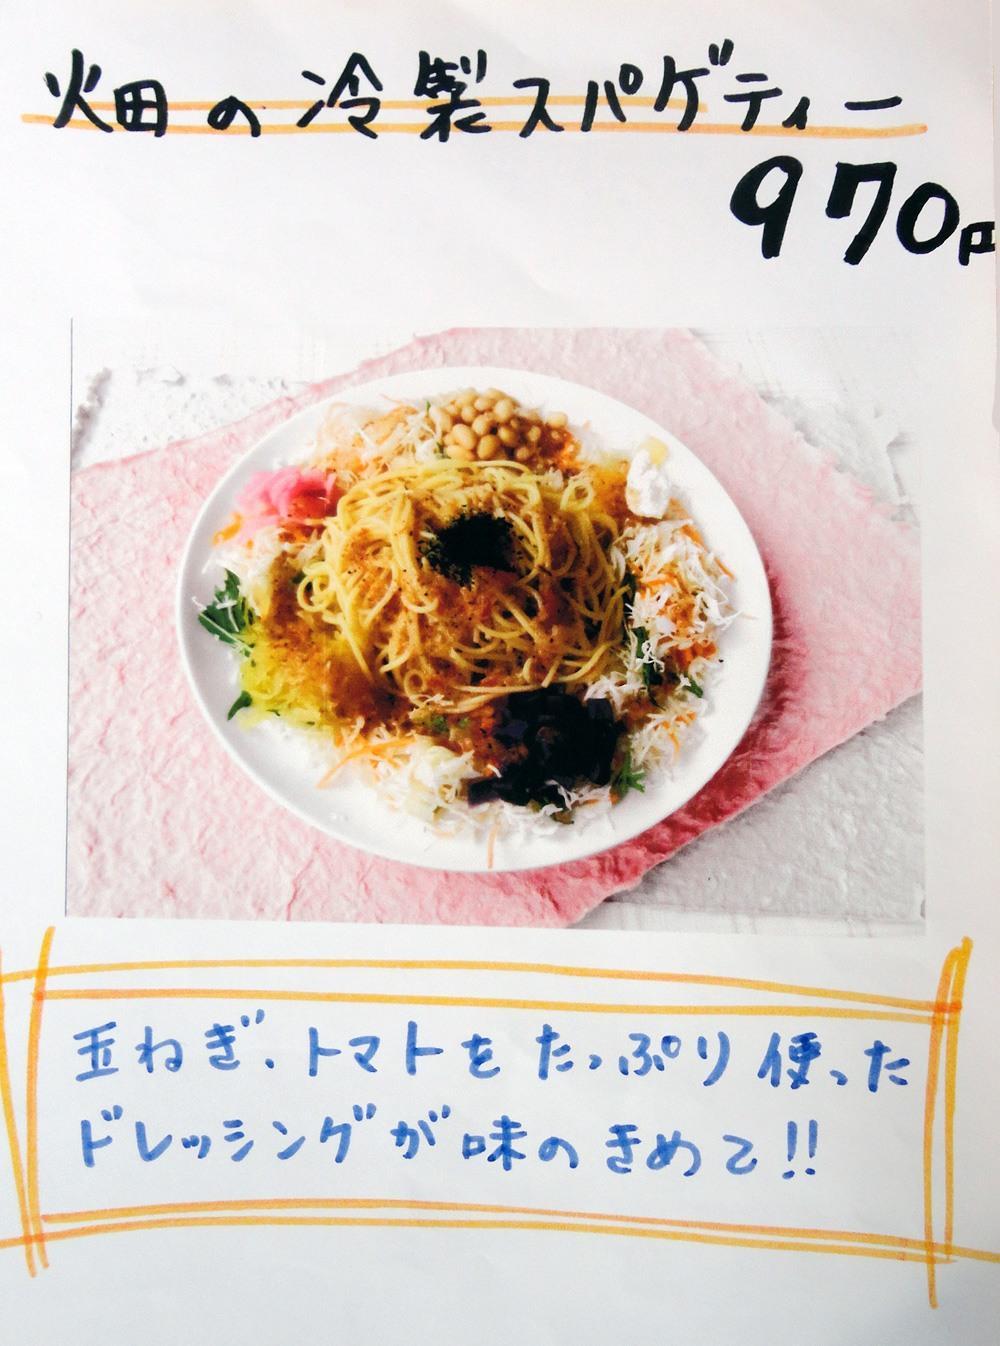 畑の冷製スパゲティー
970円
玉ねぎ、トマトをたっぷり使った
ドレッシングが味のきめて!!